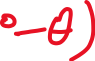 °-θ)